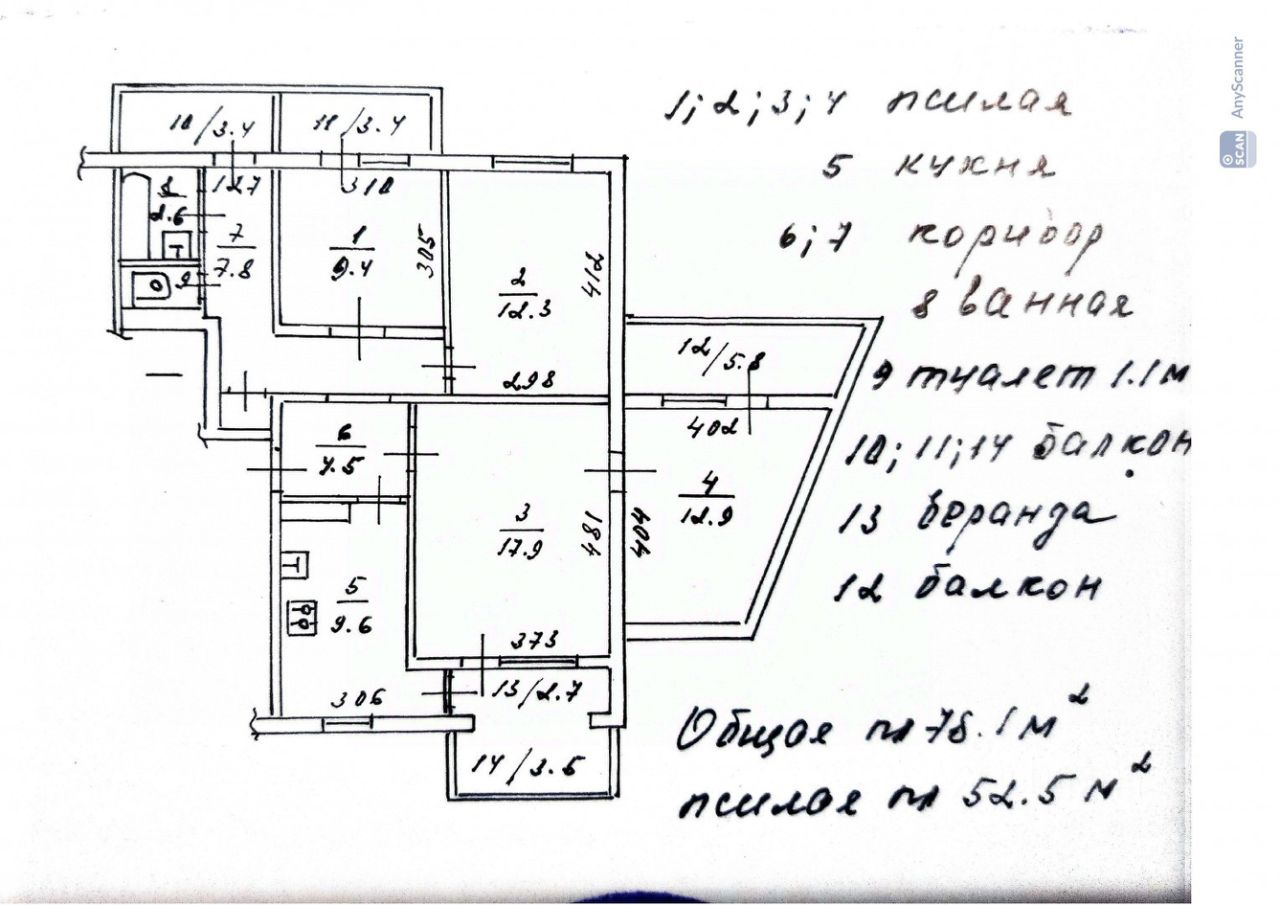 10/3.4
11/3.4
8
2.6
127
310
7
7.8
1
9.4
305
2
12.3
412
9
298
12/5.8
402
6
4.5
3
17.9
481
404
4
12.9
5
9.6
373
306
13/2.7
14/3.5
1; 2; 3; 4 жилая
5 кухня
6; 7 коридор
8 ванная
9 туалет 1.1 м
10; 11; 14 балкон
13 веранда
12 балкон
Общая пл 78.1 м²
жилая пл 52.5 м²
SCAN AnyScanner